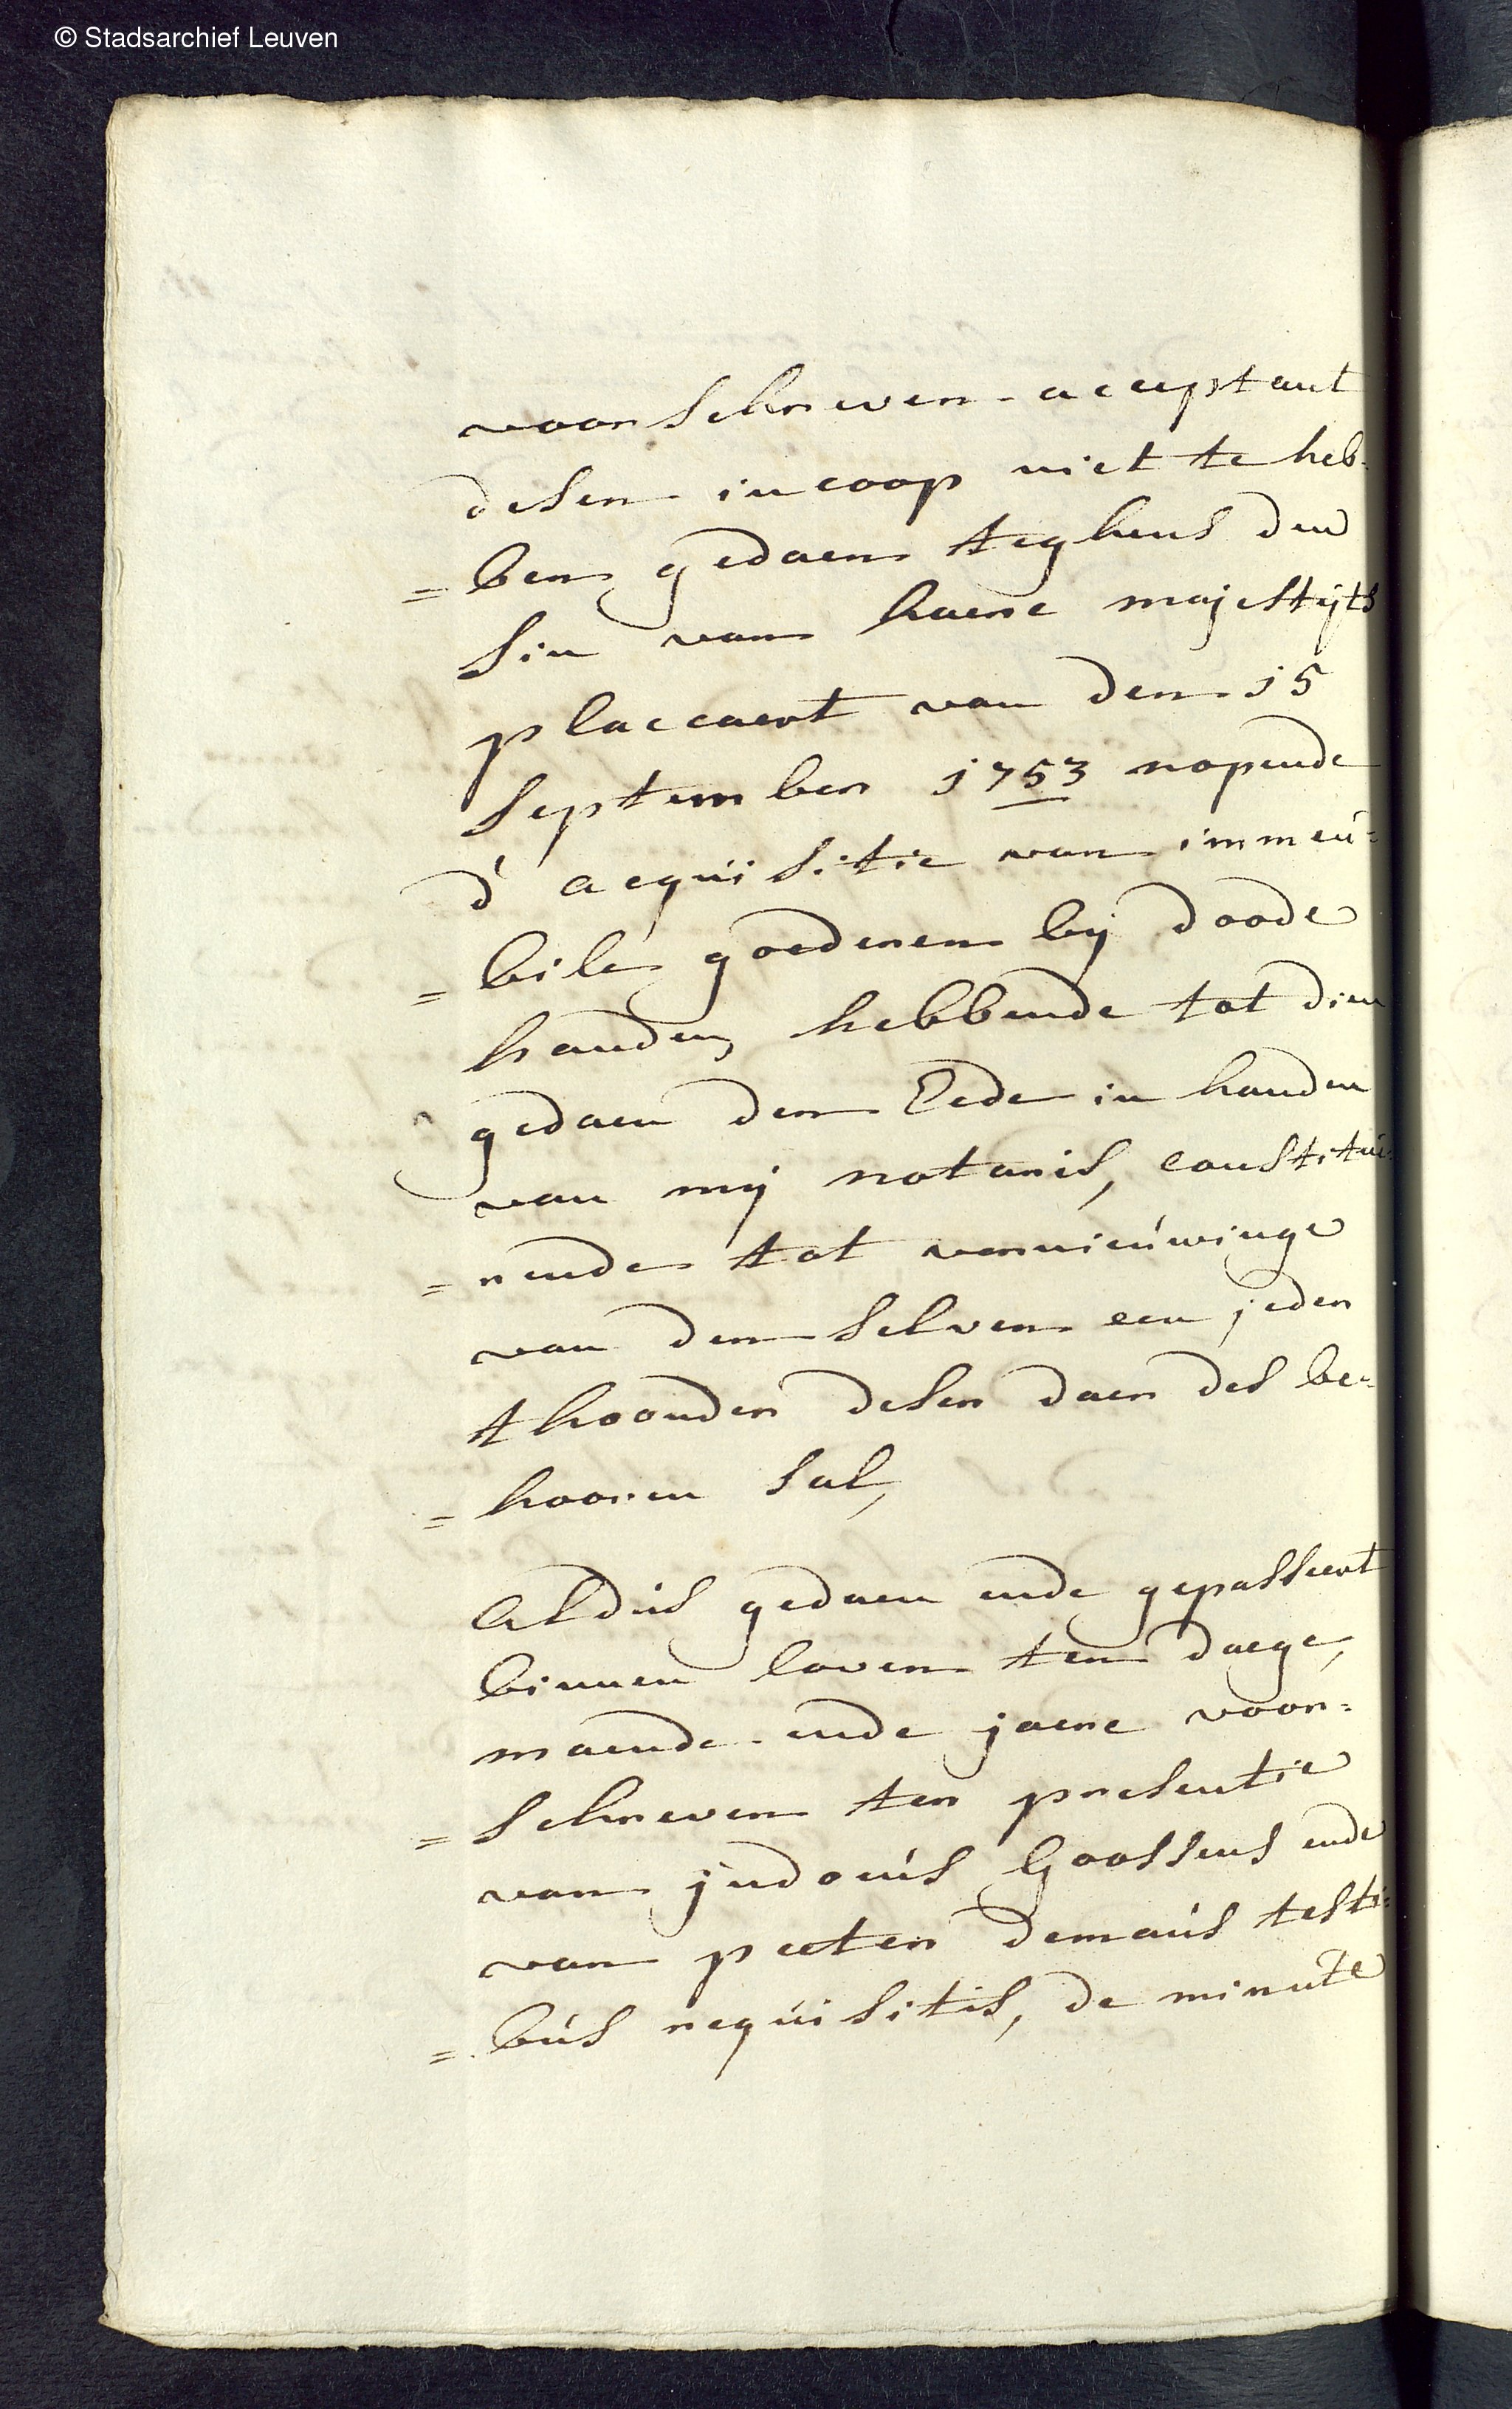 © Stadsarchief Leuven
voorschreven acceptant
desen incoop niet te heb-
=ben gedaen teghens den
sin van haere majestijts
placcaert van den 15
september 1753 nopende
d' acquisitie van immeu=
=bile goederen bij doode
handen, hebbende tot dien
gedaen den Eede in handen
van mij notaris, constitue=
=rende tot vernieuwinge
van den selven een jeder
thoonder deser daer des be=
=hooren sal,
Aldus gedaen ende gepasseert
binnen loven ten daege,
maende ende jaere voor=
=schreven ter presentie
van judocus Goossens ende
van peeter Demars testi=
=bus requisitis, de minute